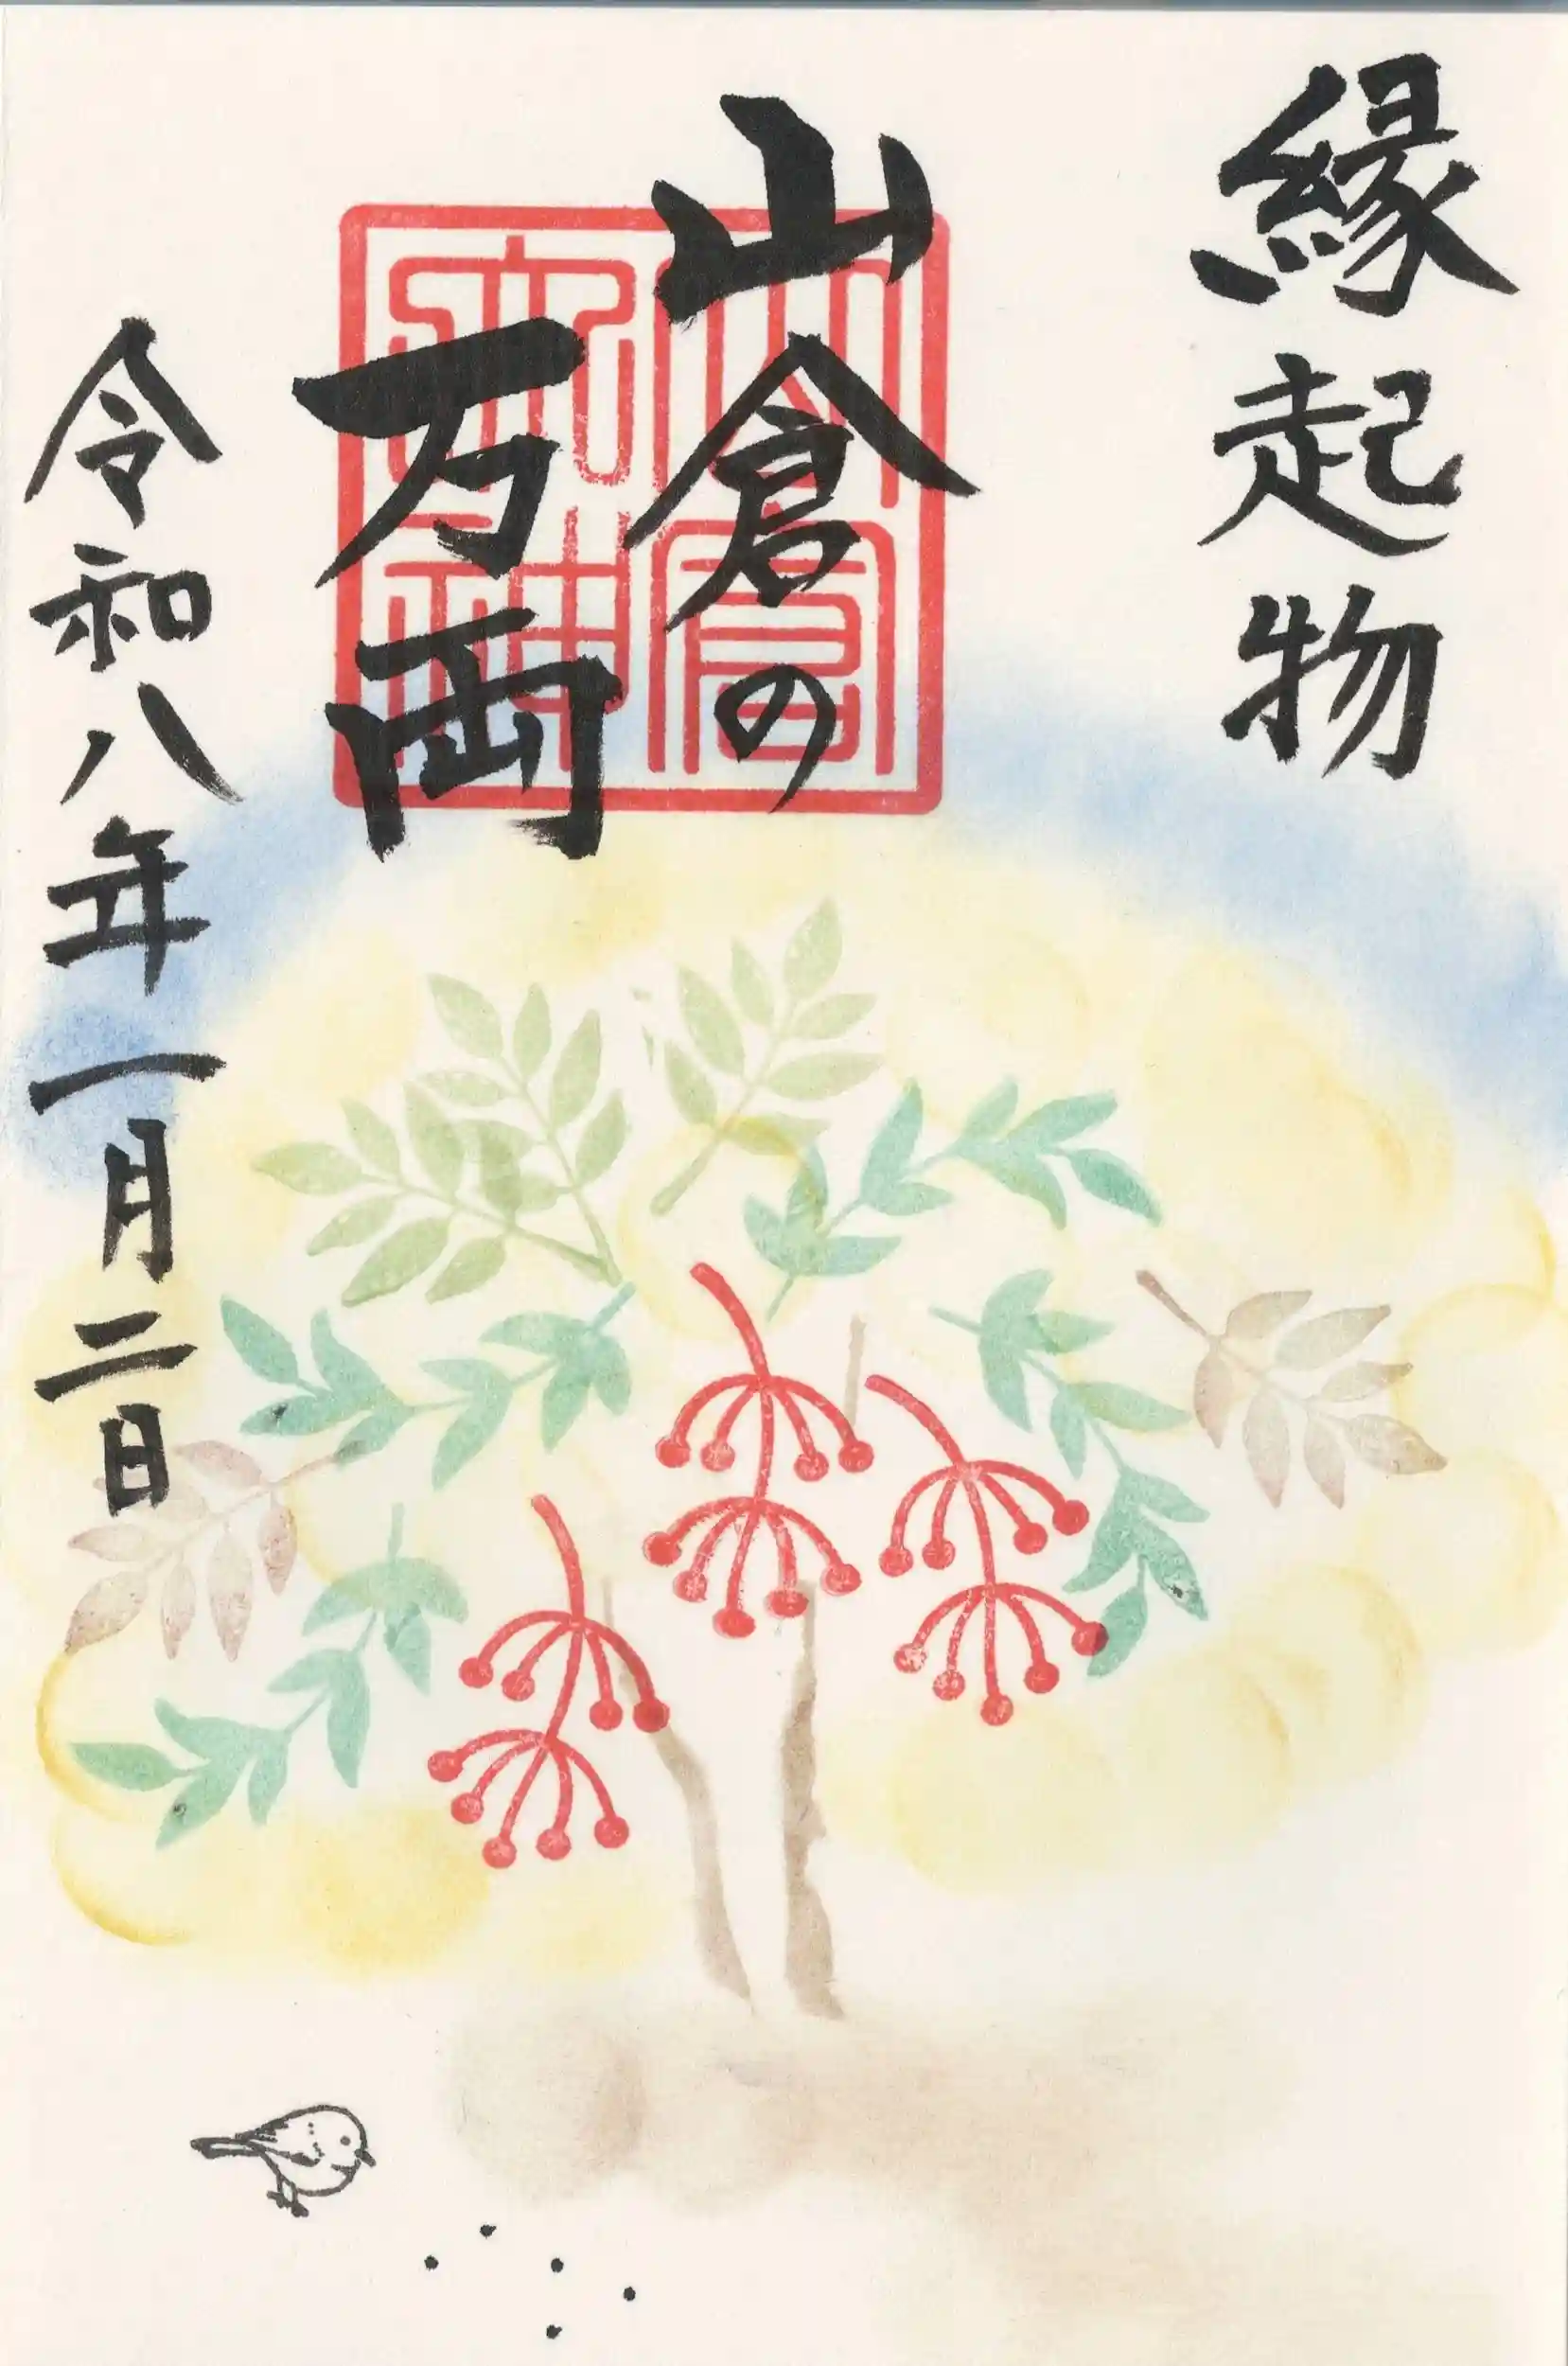 縁起物
山倉の
万両
山倉大神
令和八年一月二日